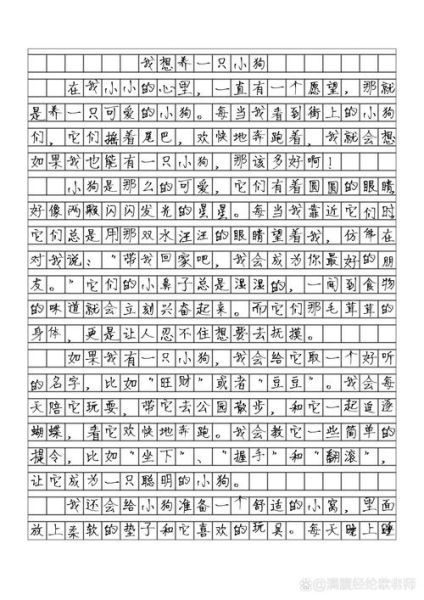 我想养一只小狗
在我小小的心里，一直有一个愿望，那就
是养一只可爱的小狗。每当我看到街上的小狗
们，它们摇着尾巴，欢快地奔跑着，我就会想
如果我也能有一只小狗，那该多好啊！
小狗是那么的可爱，它们有着圆圆的眼睛，
好像两颗闪闪发光的星星。每当我靠近它们时，
它们总是用那双水汪汪的眼睛望着我，仿佛在
对我说：“带我回家吧，我会成为你最好的朋
友。”它们的小鼻子总是湿湿的，一闻到食物
的味道就会立刻兴奋起来。而它们那毛茸茸的
身体，更是让人忍不住想要去抚摸。
如果我有一只小狗，我会给它取一个好听
的名字，比如“旺财”或者“豆豆”。我会每
天陪它玩耍，带它去公园散步，和它一起追逐
蝴蝶，看它欢快地奔跑。我会教它一些简单的
提令，比如“坐下”、“握手”和“翻滚”，
让它成为一只聪明的小狗。
我还会给小狗准备一个舒适的小窝，里面
放上柔软的垫子和它喜欢的玩具。每天晚上睡
@满腹经纶歌老师